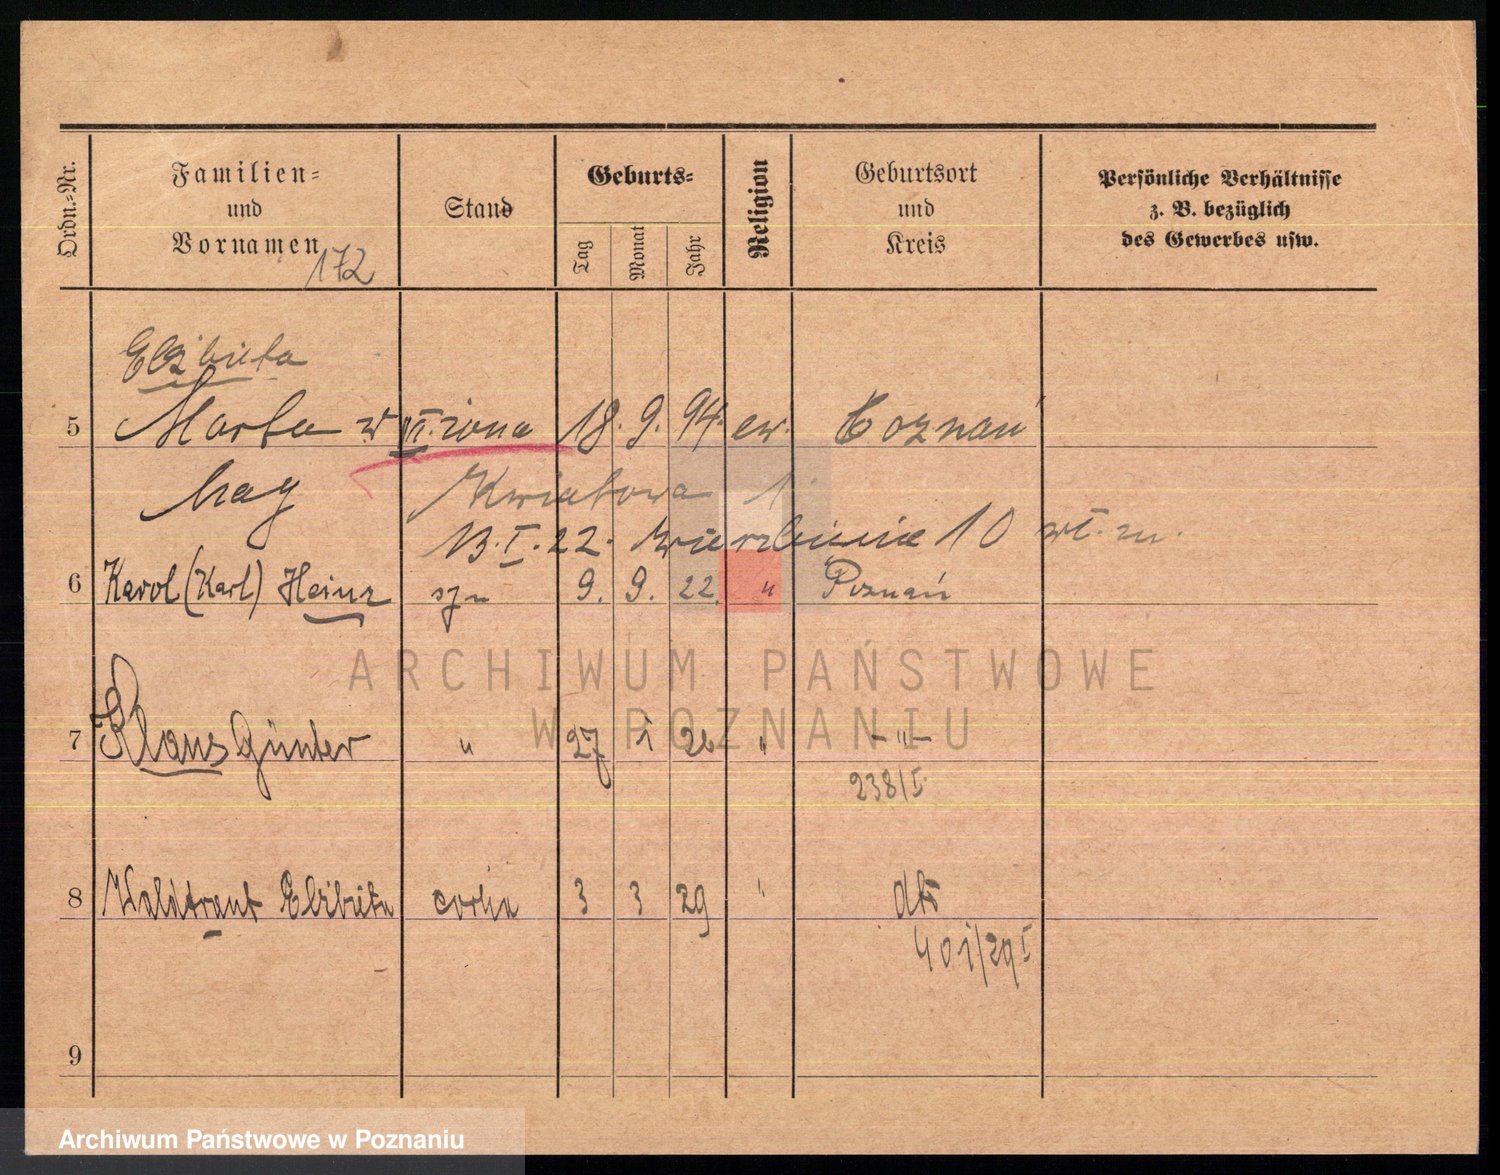 Ordn.-Nr.
Familien-
und
Vornamen
172
Stand
Geburts-
Tag
Monat
Jahr
Religion
Geburtsort
und
Kreis
Persönliche Verhältnisse
z. B. bezüglich
des Gewerbes usw.
Elżbieta
5 Marta II. żona 18. 9. 94. ew. Poznań
Kwiatowa 1
13. I. 22. Wierzbięcice 10
6 Karol (Karl) Heinz syn 9. 9. 22. " Poznań
ARCHIWUM PAŃSTWOWE
W POZNANIU
7 Klaus Günter " 27 1 26 " -"-
238/I.
8 Waldtraut Elżbieta córka 3 3 29 " dto
401/29 I
9
Archiwum Państwowe w Poznaniu